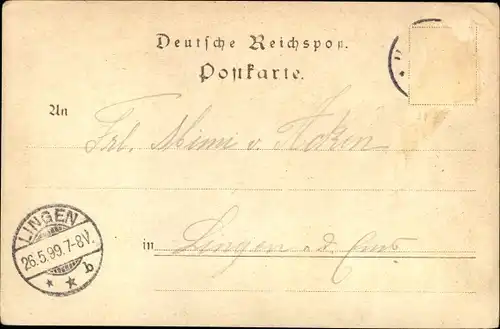 Deutsche Reichspost.
Postkarte.
An
Frl. Mimi v. Acken
in Lingen a. d. Ems
LINGEN
26.5.99.7-8V.
* * b